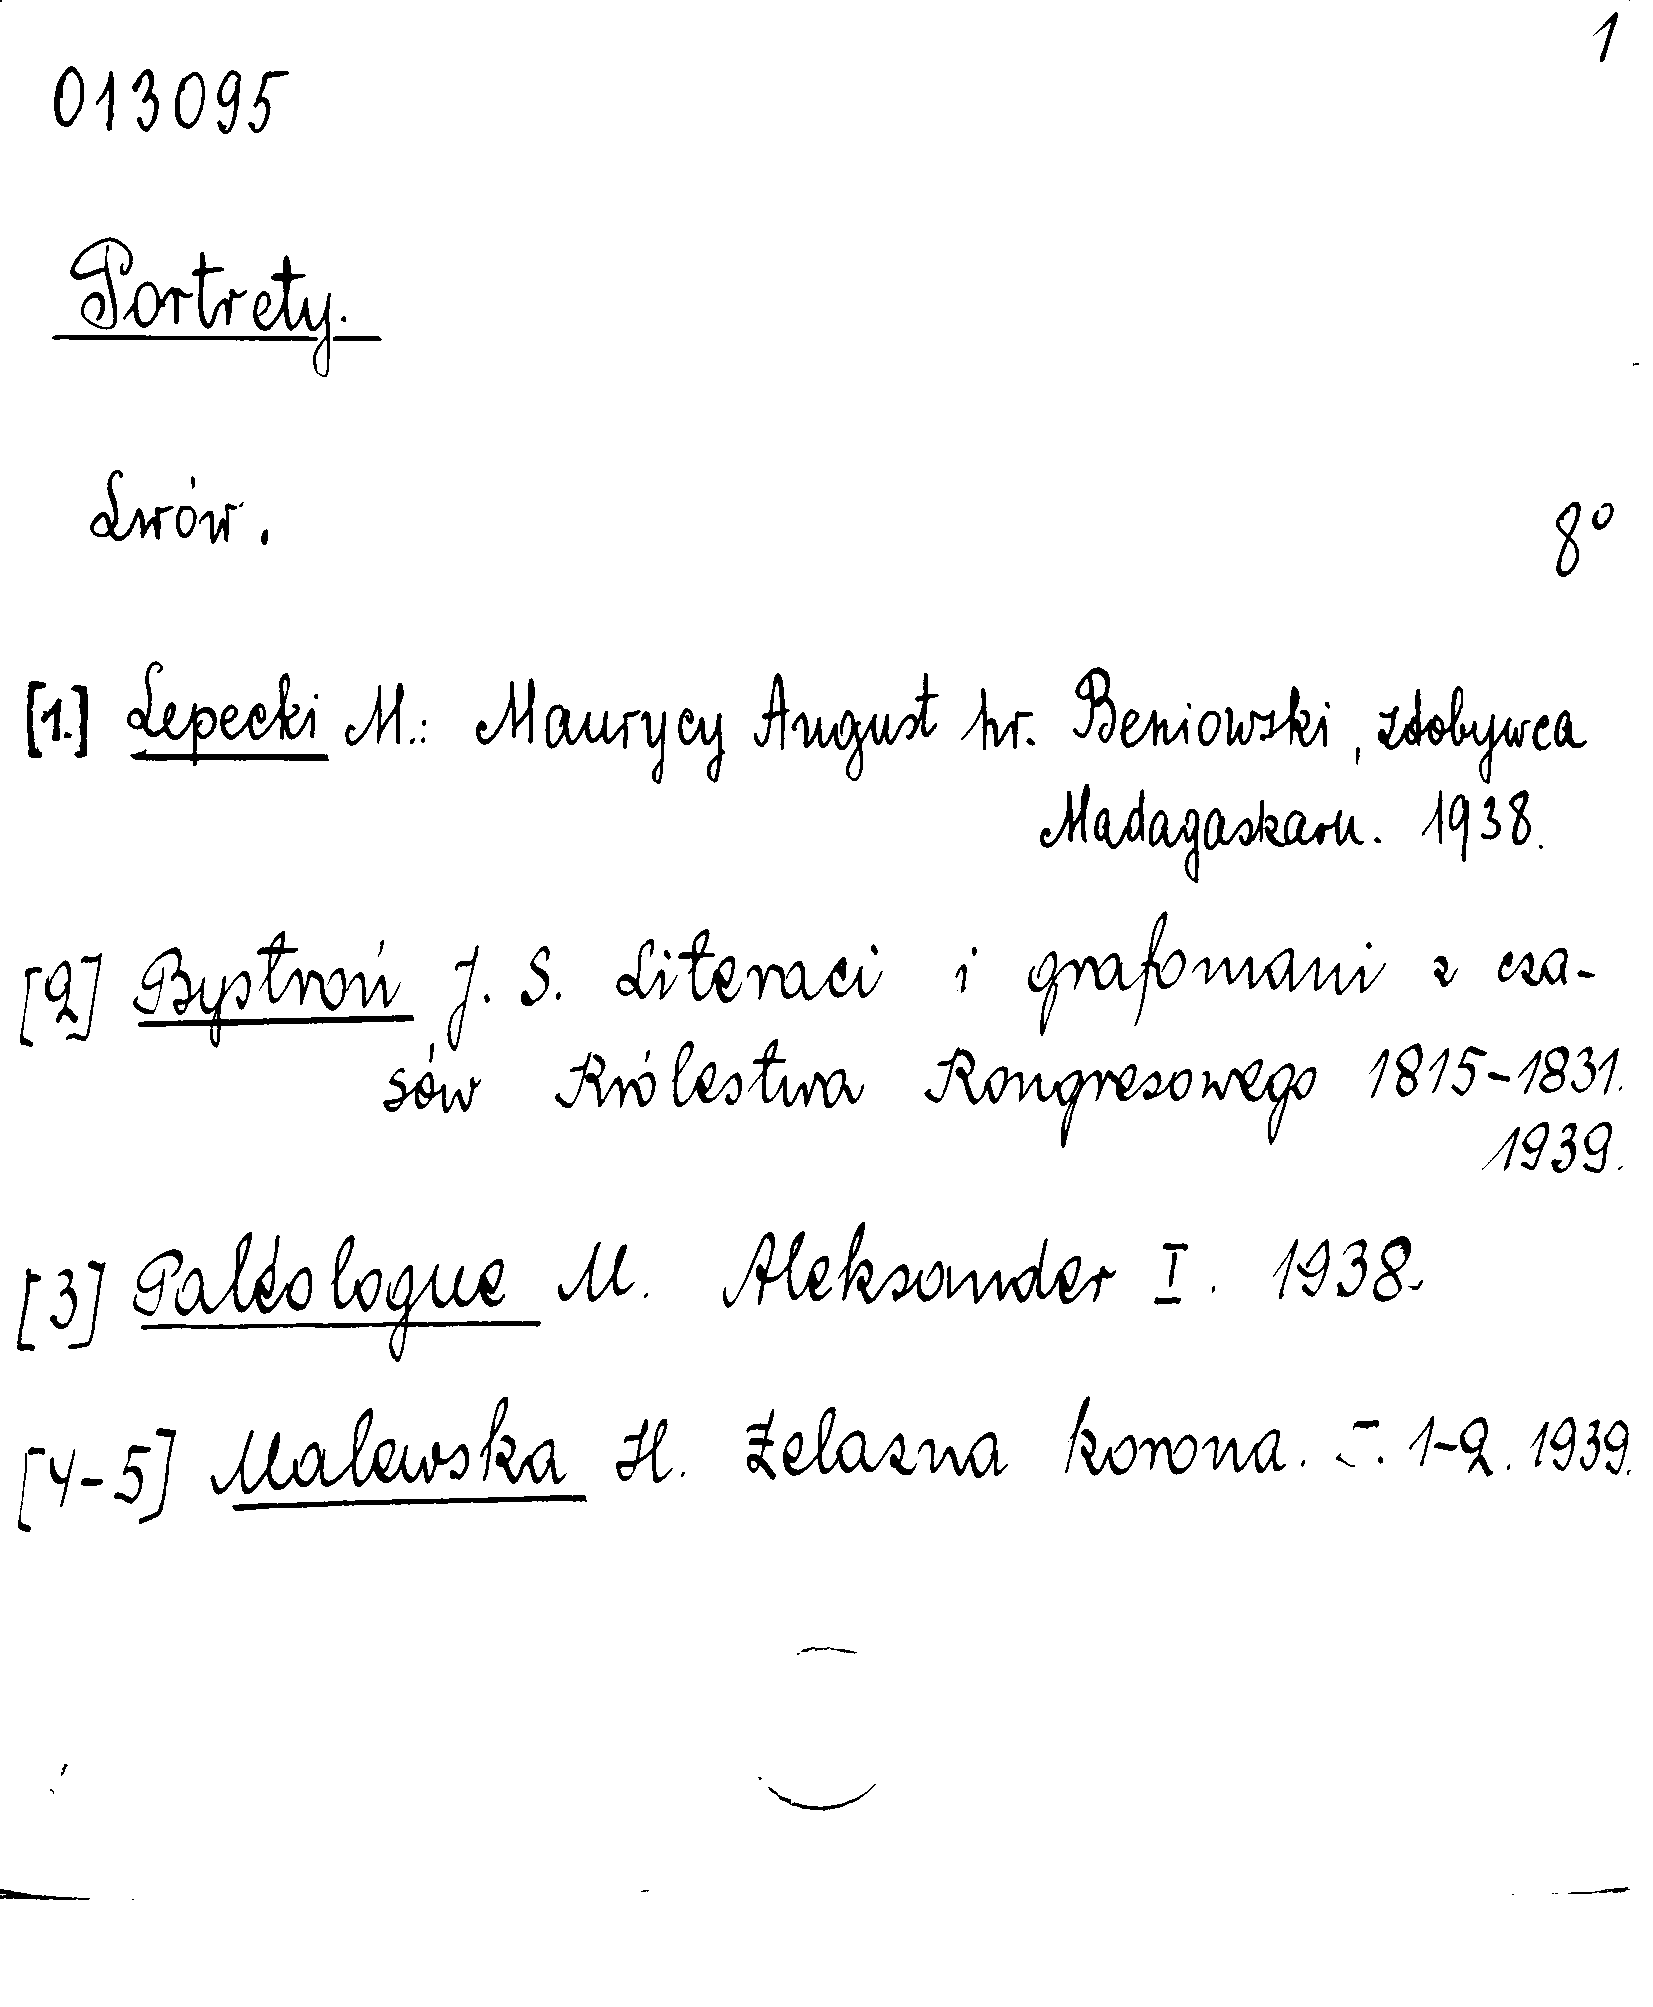 1
013095
Portrety.
Lwów.
8°
[1.] Lepecki M.: Maurycy August hr. Beniowski, zdobywca
Madagaskaru. 1938.
[2] Bystroń J. S. Literaci i grafomani z cza-
sów Królestwa Kongresowego 1815-1831.
1939.
[3] Paléologue M. Aleksander I. 1938.
[4-5] Malewska H. Żelazna korona. T. 1-2. 1939.